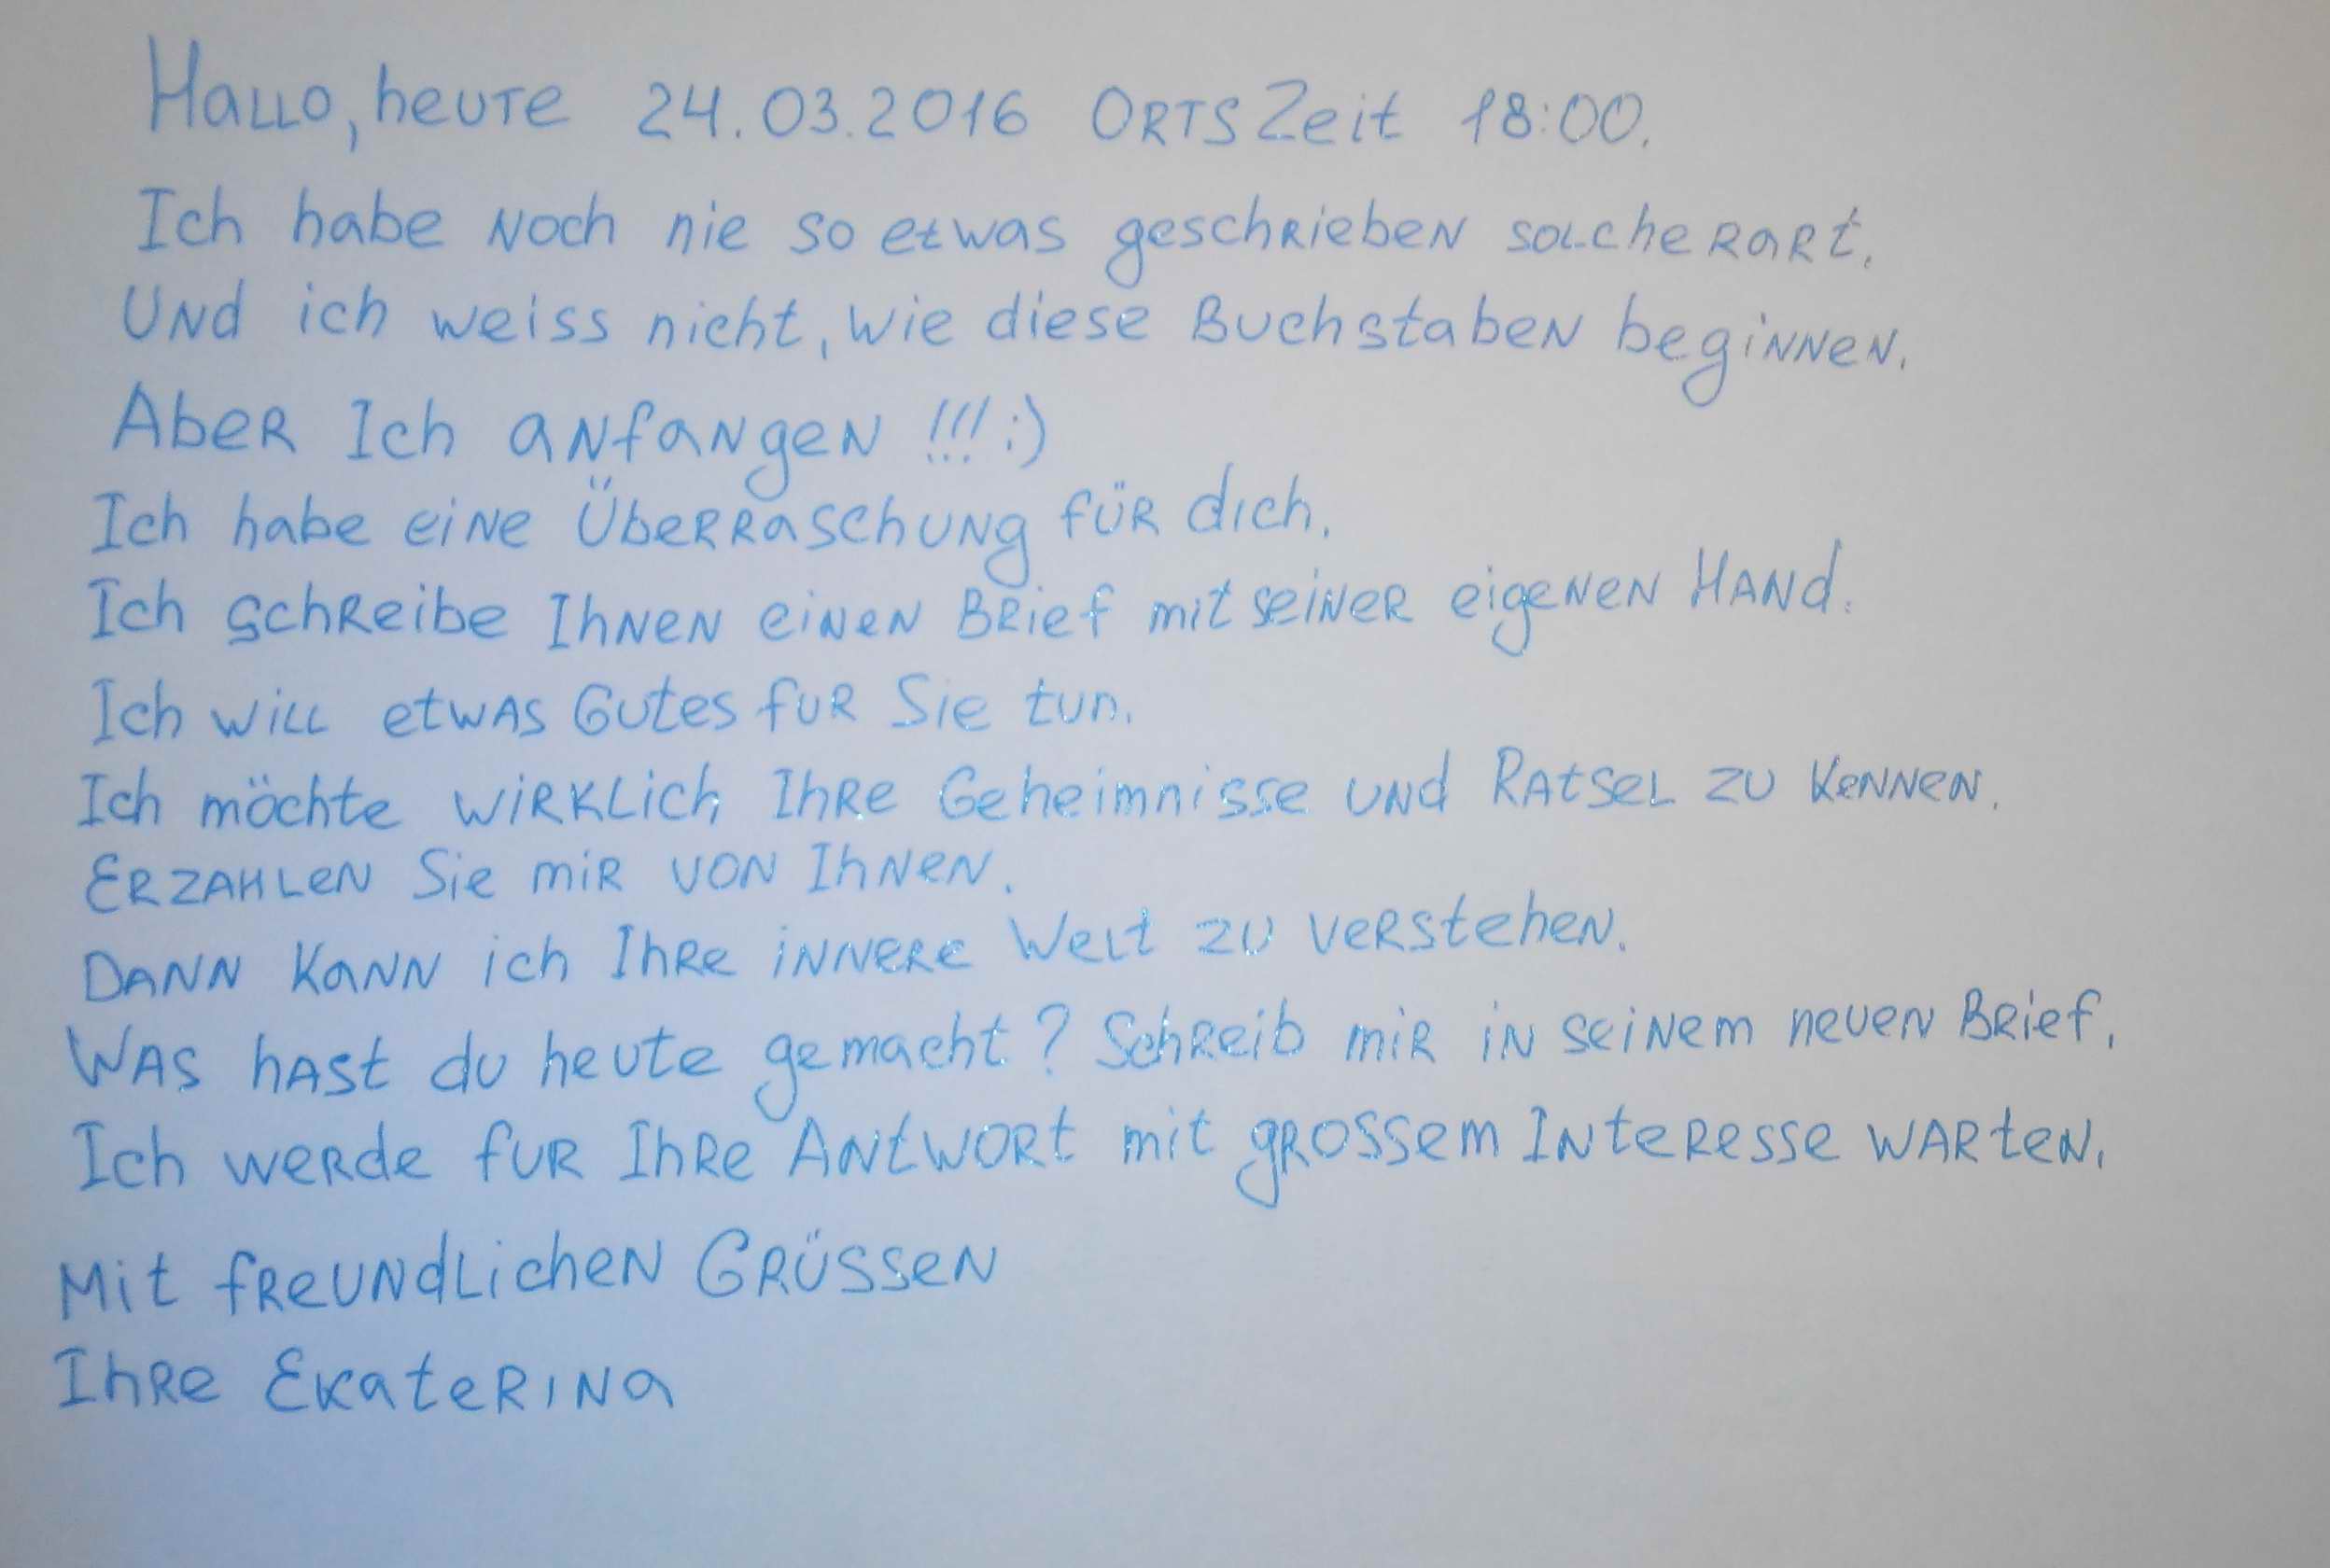 Hallo, heute 24.03.2016 Ortszeit 18:00.
Ich habe noch nie so etwas geschrieben solcherart.
Und ich weiss nicht, wie diese Buchstaben beginnen.
Aber Ich anfangen !!! :)
Ich habe eine Überraschung für dich.
Ich schreibe Ihnen einen Brief mit seiner eigenen Hand.
Ich will etwas Gutes fur Sie tun.
Ich möchte wirklich Ihre Geheimnisse und Ratsel zu kennen.
Erzahlen Sie mir von Ihnen.
Dann kann ich Ihre innere Welt zu verstehen.
Was hast du heute gemacht? Schreib mir in seinem neuen Brief.
Ich werde fur Ihre Antwort mit grossem Interesse warten.
Mit freundlichen Grüssen
Ihre Ekaterina